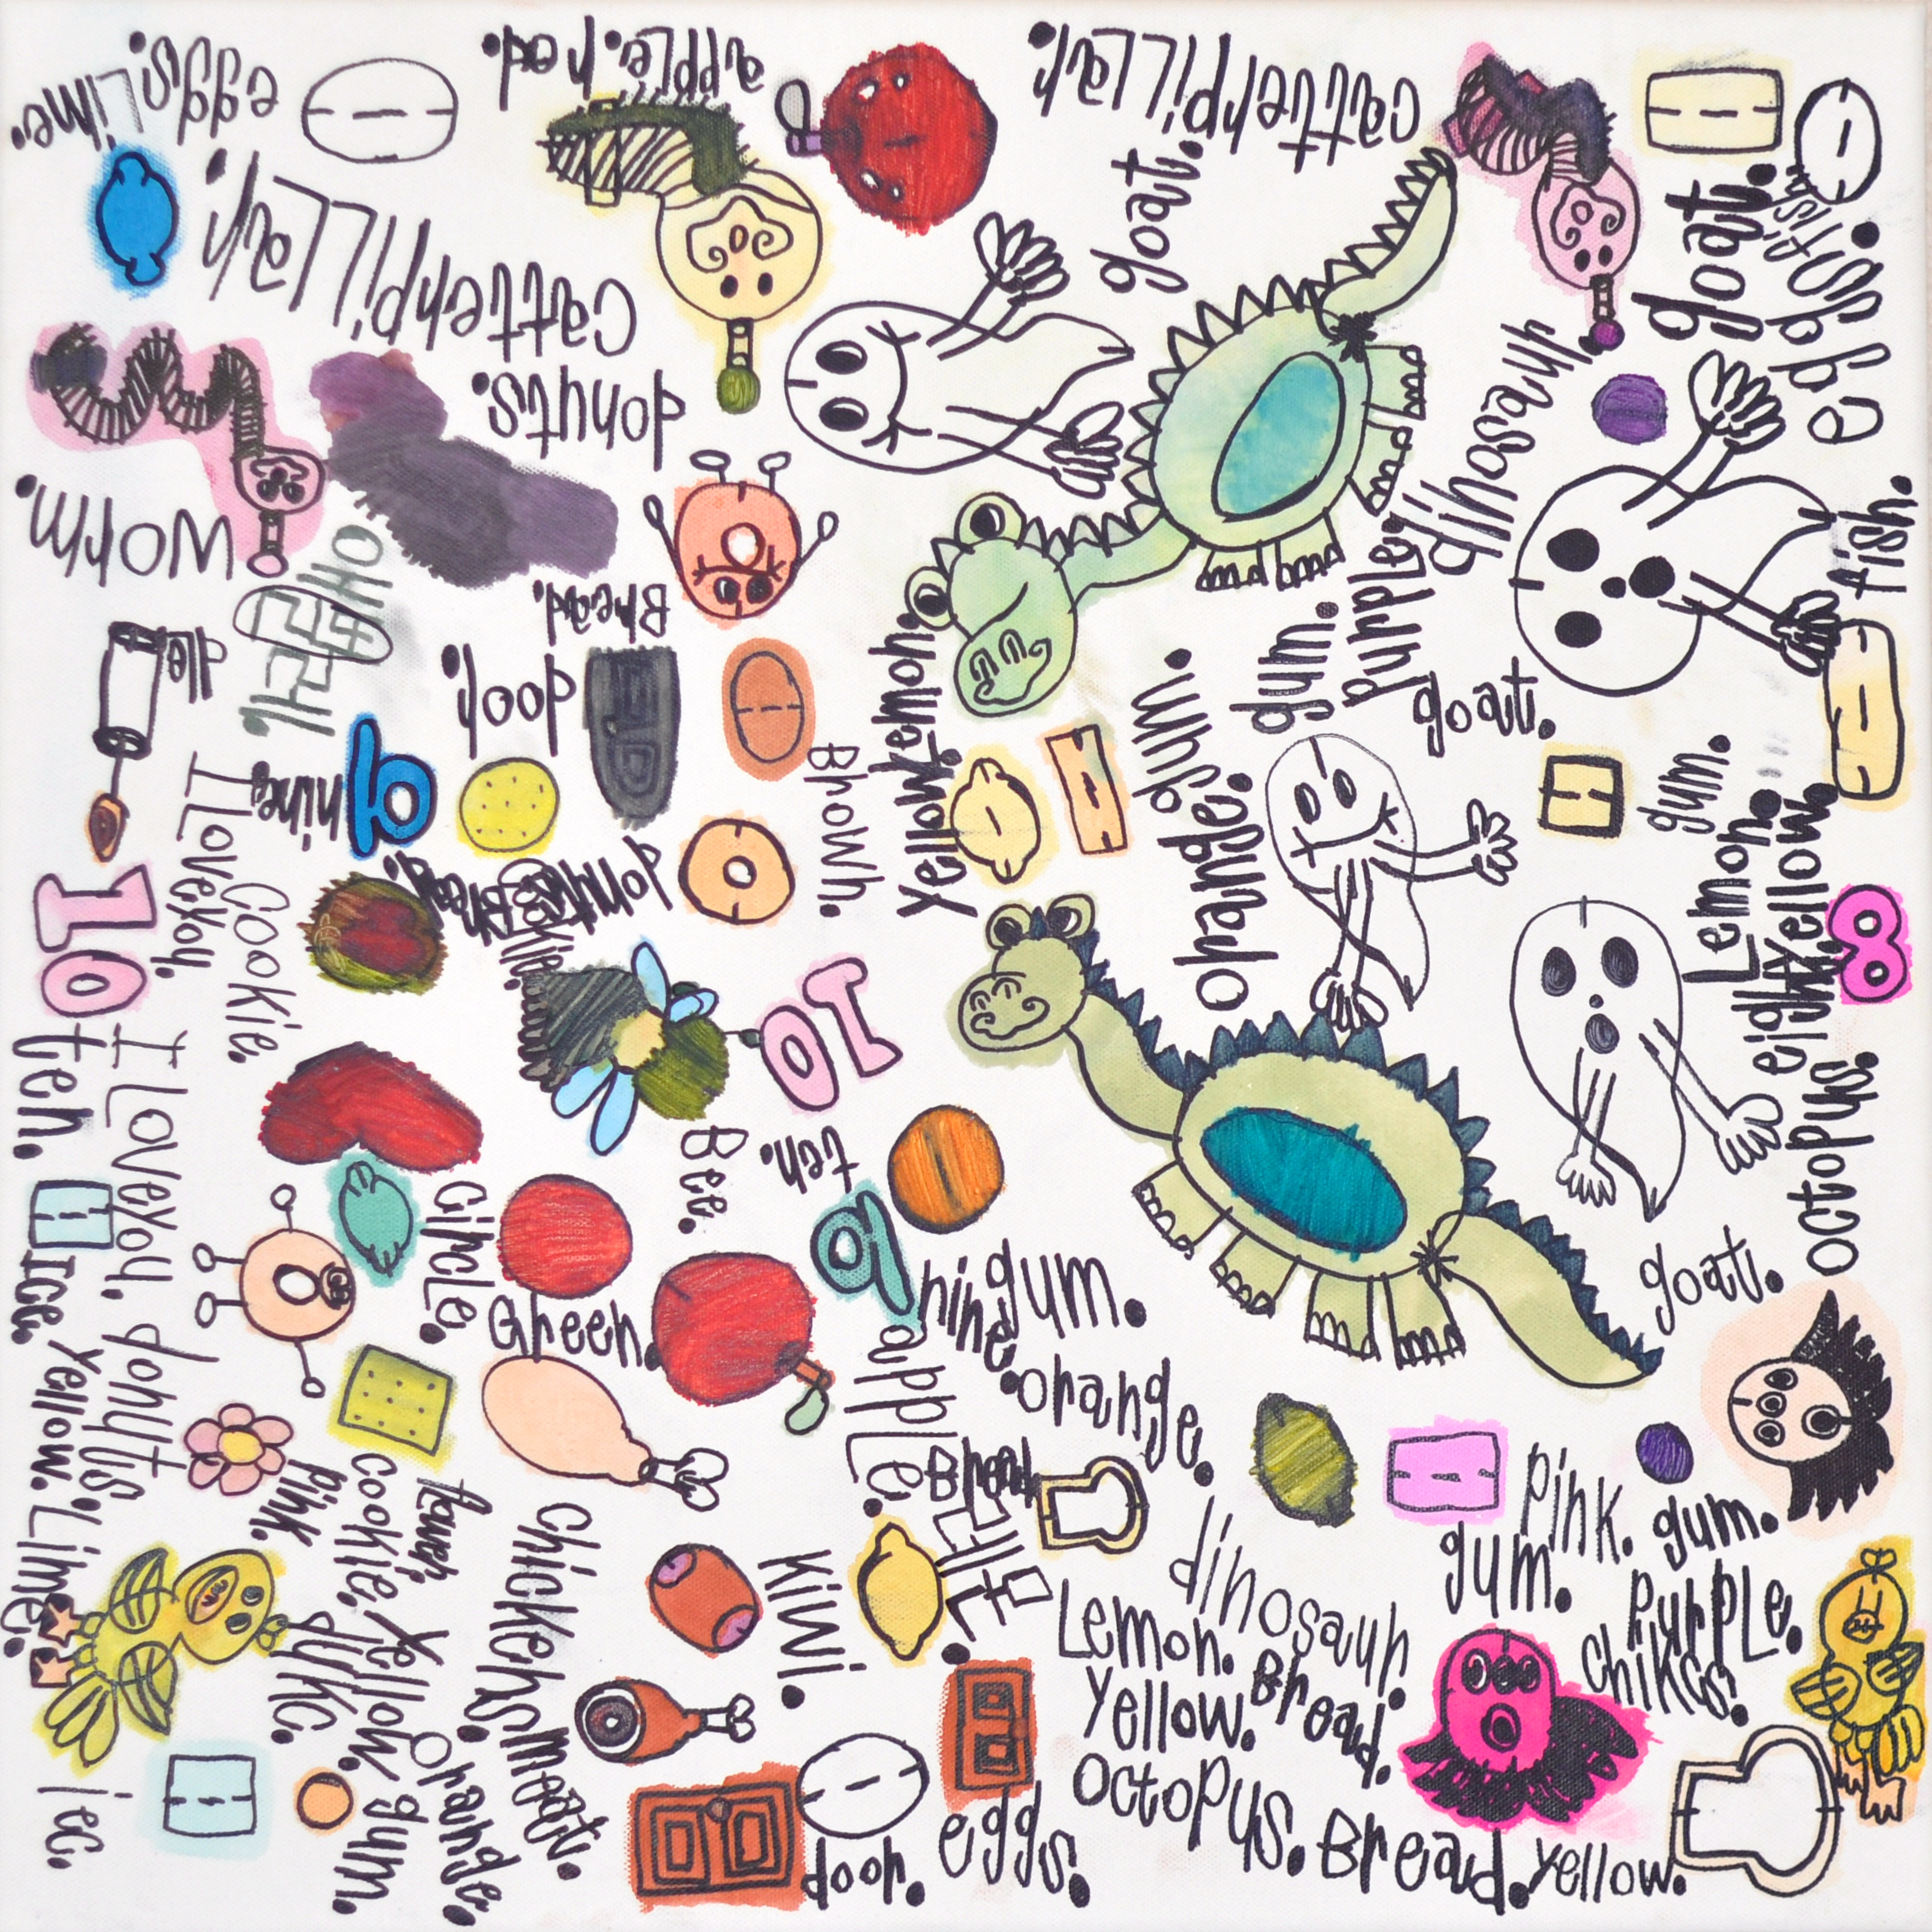 Lime.
eggs.
apple. red.
catterpillar.
catterpillar.
goat.
goat.
fish.
eggs.
donuts.
dinosaur
worm.
Bread.
purple.
fish.
door.
Lemon.
yellow
gum.
gum.
goat.
gum.
nine.
Brown.
orange.
I Love you.
Cookie.
donuts
Bread.
Lemon.
yellow.
eight.
10
10
ten.
I Love you.
Bee.
ten.
octopus.
Circle.
Green.
nine.
gum.
goat.
Ice.
donuts.
apple.
orange.
Yellow.
Lime.
pink.
cookie.
flower
Bread
pink.
gum.
gum.
chickens
kiwi.
dinosaur.
Lemon.
yellow.
Bread.
purple.
chikcs.
yellow
gum.
orange.
meat.
octopus.
Iec.
door.
eggs.
Bread.
yellow.